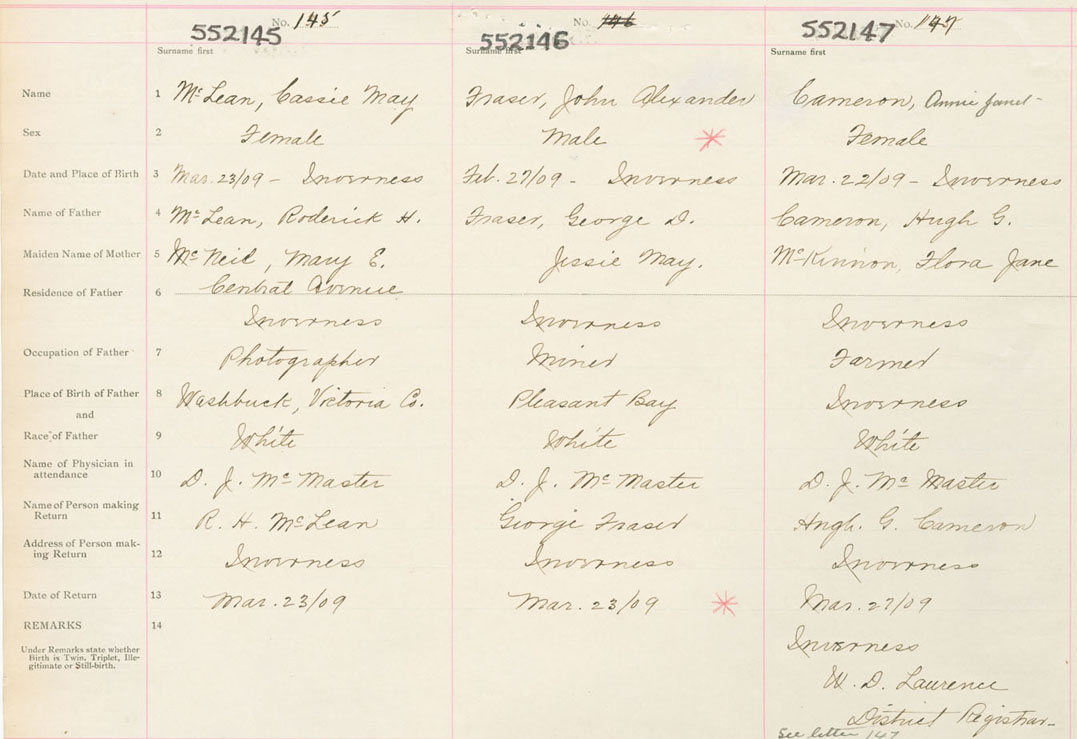 No. 145 No. 146 No. 147
552145 552146 552147
Surname first Surname first Surname first
Name 1 McLean, Cassie May Fraser, John Alexander Cameron, Annie Janet
Sex 2 Female Male * Female
Date and Place of Birth 3 Mar. 23/09 - Inverness Feb. 27/09 - Inverness Mar. 22/09 - Inverness
Name of Father 4 McLean, Roderick H. Fraser, George D. Cameron, Hugh G.
Maiden Name of Mother 5 McNeil, Mary E. Jessie May. McKinnon, Flora Jane
Central Avenue
Residence of Father 6
Inverness Inverness Inverness
Occupation of Father 7 Photographer Miner Farmer
Place of Birth of Father 8 Washbuck, Victoria Co. Pleasant Bay Inverness
and
Race of Father 9 White White White
Name of Physician in
attendance 10 D. J. McMaster D. J. McMaster D. J. McMaster
Name of Person making
Return 11 R. H. McLean George Fraser Hugh. G. Cameron
Address of Person mak-
ing Return 12 Inverness Inverness Inverness
Date of Return 13 Mar. 23/09 Mar. 23/09 * Mar. 27/09
REMARKS 14
Inverness
Under Remarks state whether
Birth is Twin, Triplet, Ille-
gitimate or Still-birth.
W. D. Laurence
District Registrar
See letter 147